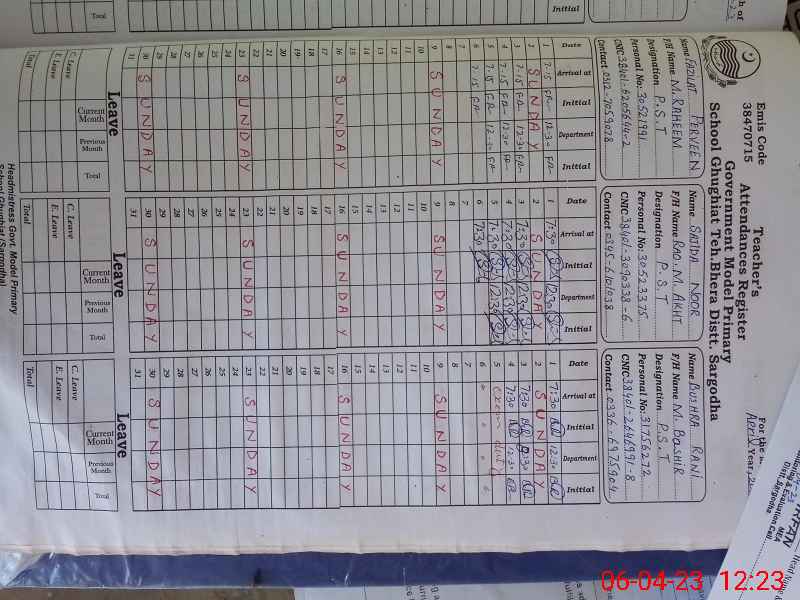 Teacher's
Attendances Register
Government Model Primary
School Ghughiat Teh.Bhera Distt. Sargodha
Emis Code
38470715
For the
April Year,
Name FAZILAT PERVEEN
F/H Name M. RAHEEM
Designation P.S.T
Personal No: 30521991
CNIC 38401-6205644-2
Contact 0312-7059078
Date Arrival at Initial Department Initial
1 7-15 FR 12-30 FR
2 SUNDAY
3 7-15 FR 12-30 FR
4 7-15 FR 12-30 FR
5 7-15 FR 12-30 FR
6 7-15 FR
7
8
9 SUNDAY
10
11
12
13
14
15
16 SUNDAY
17
18
19
20
21
22
23 SUNDAY
24
25
26
27
28
29
30 SUNDAY
31
Leave
Current Month Previous Month Total
C. Leave
E. Leave
Total
Name SAJDA NOOR
F/H Name Rao. M. AKHT
Designation P.S.T
Personal No: 30523375
CNIC 38401-3090338-6
Contact 0345-6101038
Date Arrival at Initial Department Initial
1 7:30 12:30
2 SUNDAY
3 7:30 12:30
4 7:30 12:30
5 7:30 12:30
6 7:30
7
8
9 SUNDAY
10
11
12
13
14
15
16 SUNDAY
17
18
19
20
21
22
23 SUNDAY
24
25
26
27
28
29
30 SUNDAY
31
Leave
Current Month Previous Month Total
C. Leave
E. Leave
Total
Name BUSHRA RANI
F/H Name M. Bashir
Designation P.S.T
Personal No: 31756272
CNIC 38401-2646991-8
Contact 0336-6975904
Date Arrival at Initial Department Initial
1 7:30 BR 12:30 BR
2 SUNDAY
3 7:30 BR 12:30 BR
4 7:30 BR 12:30 BR
5 exam duty
6
7
8
9 SUNDAY
10
11
12
13
14
15
16 SUNDAY
17
18
19
20
21
22
23 SUNDAY
24
25
26
27
28
29
30 SUNDAY
31
Leave
Current Month Previous Month Total
C. Leave
E. Leave
Total
Headmistress Govt. Model Primary
School Ghughiat (Sargodha)
Total
Initial
IRFAN
MEA
& Evaluation Cell
Distt. Sargodha
Head Name &
06-04-23 12:23